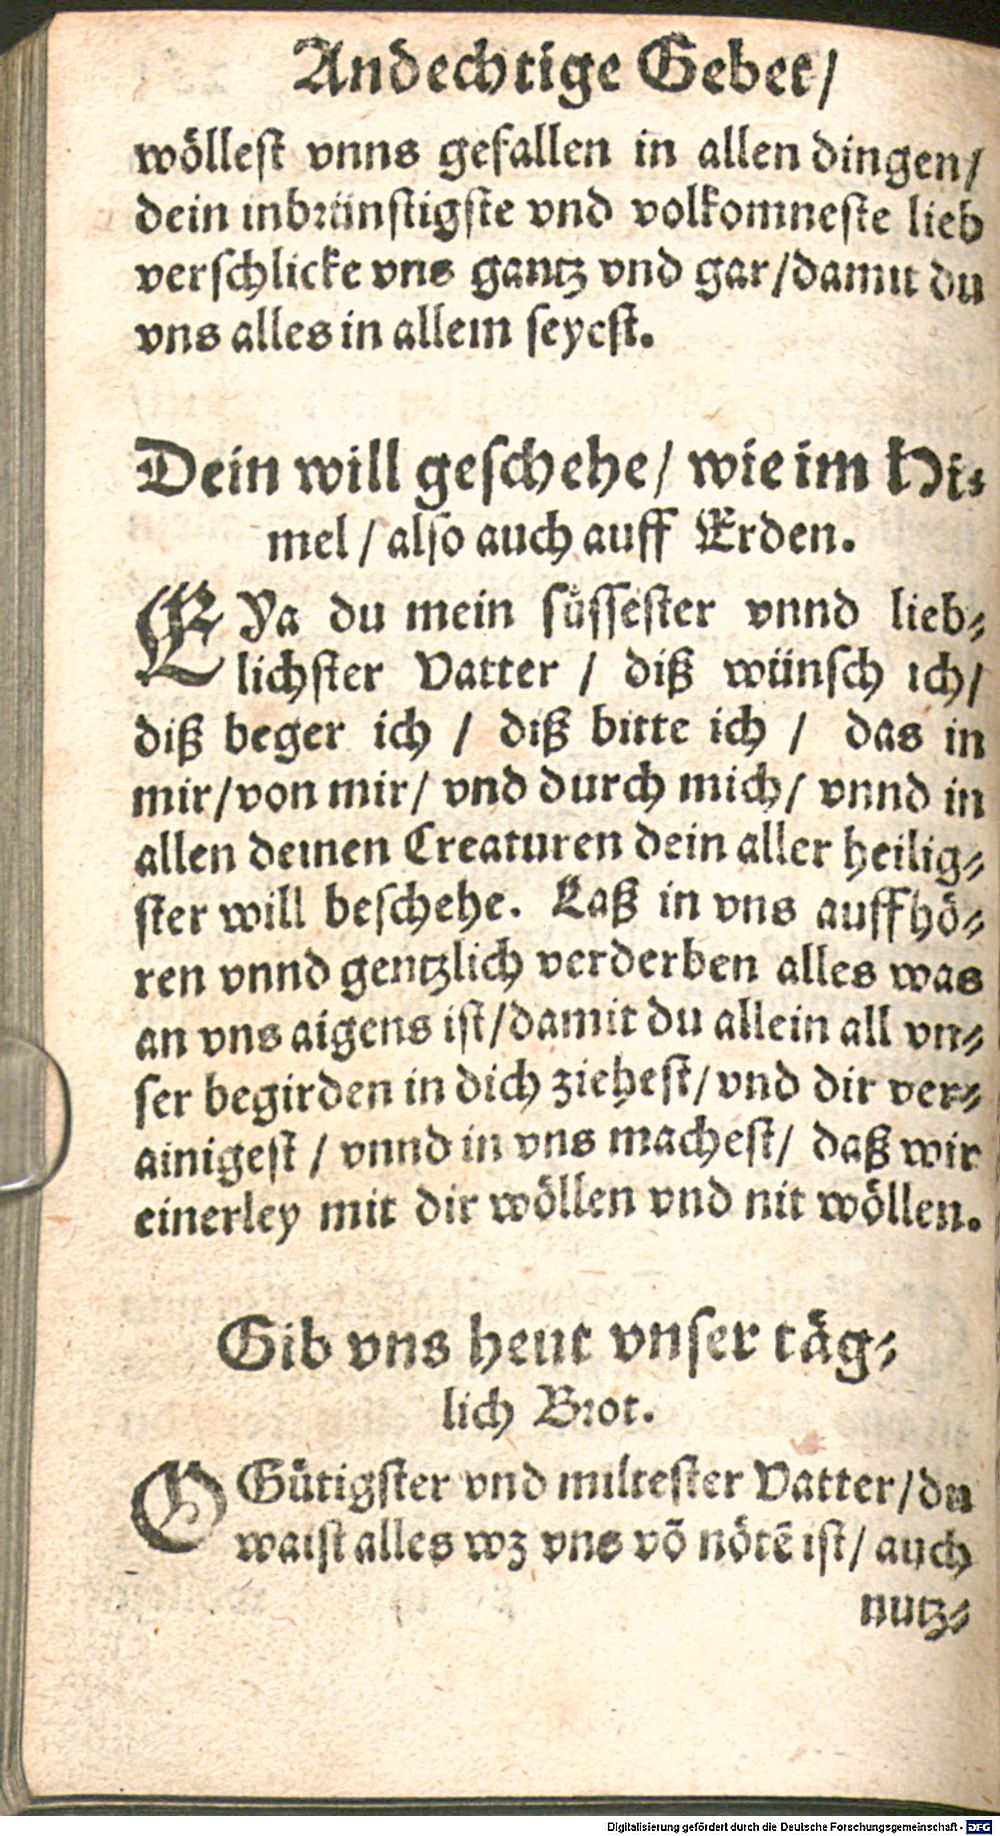 Andechtige Gebet/
wöllest vnns gefallen in allen dingen/
dein inbrünstigste vnd volkomneste lieb
verschlicke vns gantz vnd gar/damit du
vns alles in allem seyest.
Dein will geschehe/ wie im Hi-
mel / also auch auff Erden.
EYa du mein süssester vnnd lieb-
lichster Vatter / diß wünsch ich/
diß beger ich / diß bitte ich / das in
mir/von mir/ vnd durch mich/ vnnd in
allen deinen Creaturen dein aller heilig-
ster will beschehe. Laß in vns auffhö-
ren vnnd gentzlich verderben alles was
an vns aigens ist/damit du allein all vn-
ser begirden in dich ziehest/vnd dir ver-
ainigest / vnnd in vns machest/ daß wir
einerley mit dir wöllen vnd nit wöllen.
Gib vns heut vnser täg-
lich Brot.
O Gütigster vnd miltester Vatter/du
waist alles wz vns võ nötẽ ist/ auch
nutz-
Digitalisierung gefördert durch die Deutsche Forschungsgemeinschaft - DFG